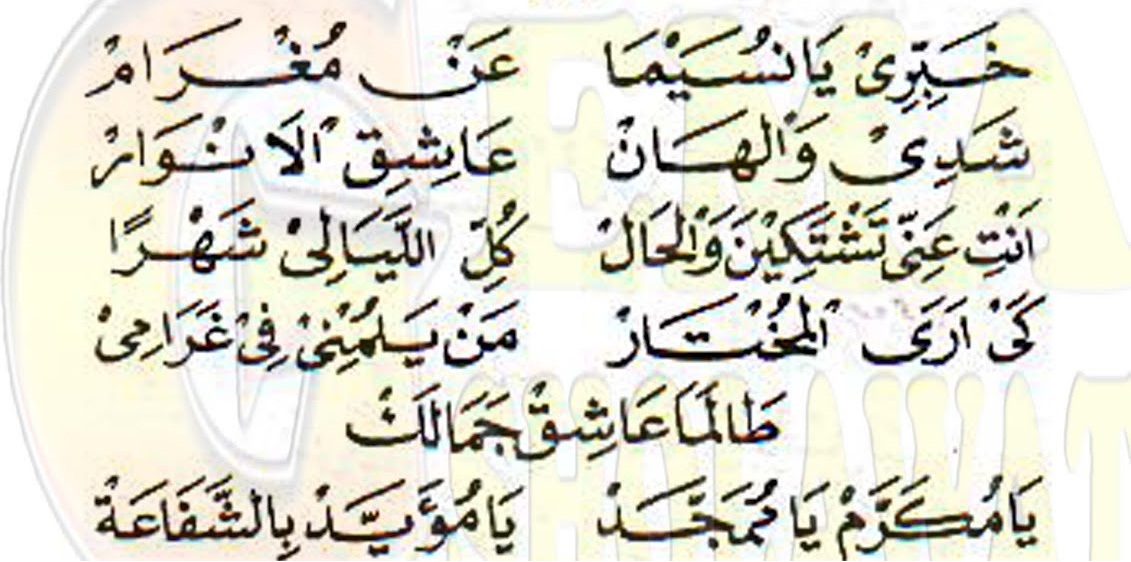 خَبِّرِىْ يَانُسَيْمَا عَنْ مُغْرَامْ
شَدِىْ وَالْهَانْ عَاشِقِ الْاَنْوَارْ
اَنْتِ عَنِّىْ تَشْتَكِيْنَ وَالْحَالْ كُلِّ اللَّيَالِىْ شَهْرًا
كَىْ اَرَى الْمُخْتَارْ مَنْ يَلُمْنِىْ فِىْ غَرَامِىْ
طَالَمَا عَاشِقْ جَمَالَكْ
يَامُكَرَّمْ يَا مُمَجَّدْ يَامُؤَيَّدْ بِالشَّفَاعَةْ